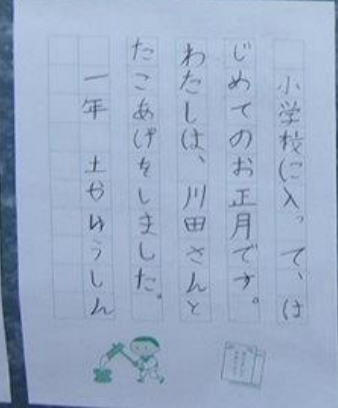 小学校に入って、は
じめてのお正月です。
わたしは、川田さんと
たこあげをしました。
一年 土やゆうしん